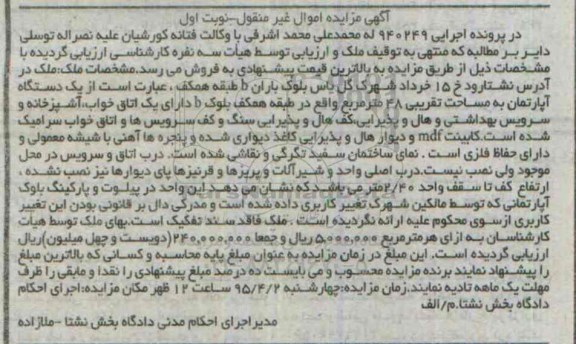 آگهی مزایده اموال غیر منقول–نوبت اول
در پرونده اجرایی ۹۴۰۲۴۹ له محمدعلی محمد اشرفی با وکالت فتانه کورشیان علیه نصراله توسلی
دایر بر مطالبه که منتهی به توقیف ملک و ارزیابی توسط هیأت سه نفره کارشناسی ارزیابی گردیده با
مشخصات ذیل از طریق مزایده به بالاترین قیمت پیشنهادی به فروش می رسد.مشخصات ملک:ملک در
آدرس نشتارود خ ۱۵ خرداد شهرک گل یاس بلوک باران b طبقه همکف ، عبارت است از یک دستگاه
آپارتمان به مساحت تقریبی ۴۸ مترمربع واقع در طبقه همکف بلوک b دارای یک اتاق خواب،آشپزخانه و
سرویس بهداشتی و هال و پذیرایی،کف هال و پذیرایی سنگ و کف سرویس ها و اتاق خواب سرامیک
شده است.کابینت mdf و دیوار هال و پذیرایی کاغذ دیواری شده و پنجره ها آهنی با شیشه معمولی و
دارای حفاظ فلزی است . نمای ساختمان سفید تگرگی و نقاشی شده است. درب اتاق و سرویس در محل
موجود ولی نصب نیست.درب اصلی واحد و شیرآلات و پریزها و قرنیزها پای دیوارها نیز نصب نشده ،
ارتفاع کف تا سقف واحد ۲/۴۰متر می باشد که نشان می دهد این واحد در پیلوت و پارکینگ بلوک
آپارتمانی که توسط مالکین شهرک تغییر کاربری داده شده است و مدرکی دال بر قانونی بودن این تغییر
کاربری ازسوی محکوم علیه ارائه نگردیده است . ملک فاقد سند تفکیک است.بهای ملک توسط هیأت
کارشناسان به ازای هرمترمربع ۵،۰۰۰،۰۰۰ ریال و جمعا ۲۴۰،۰۰۰،۰۰۰(دویست و چهل میلیون)ریال
ارزیابی گردیده است. این مبلغ در زمان مزایده به عنوان مبلغ پایه محاسبه و کسانی که بالاترین مبلغ
را پیشنهاد نمایند برنده مزایده محسوب و می بایست ده درصد مبلغ پیشنهادی را نقدا و مابقی را ظرف
مهلت یک ماهه تادیه نمایند.زمان مزایده:چهارشنبه ۹۵/۴/۲ ساعت ۱۲ ظهر مکان مزایده:اجرای احکام
دادگاه بخش نشتا.م/الف
مدیر اجرای احکام مدنی دادگاه بخش نشتا –ملازاده